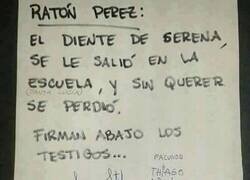 RATÓN PEREZ:
EL DIENTE DE SERENA,
SE LE SALIÓ EN LA
ESCUELA, Y SIN QUERER
(SANTA LUCIA)
SE PERDIÓ.
FIRMAN ABAJO LOS
TESTIGOS...
FACUNDO
THIAGO